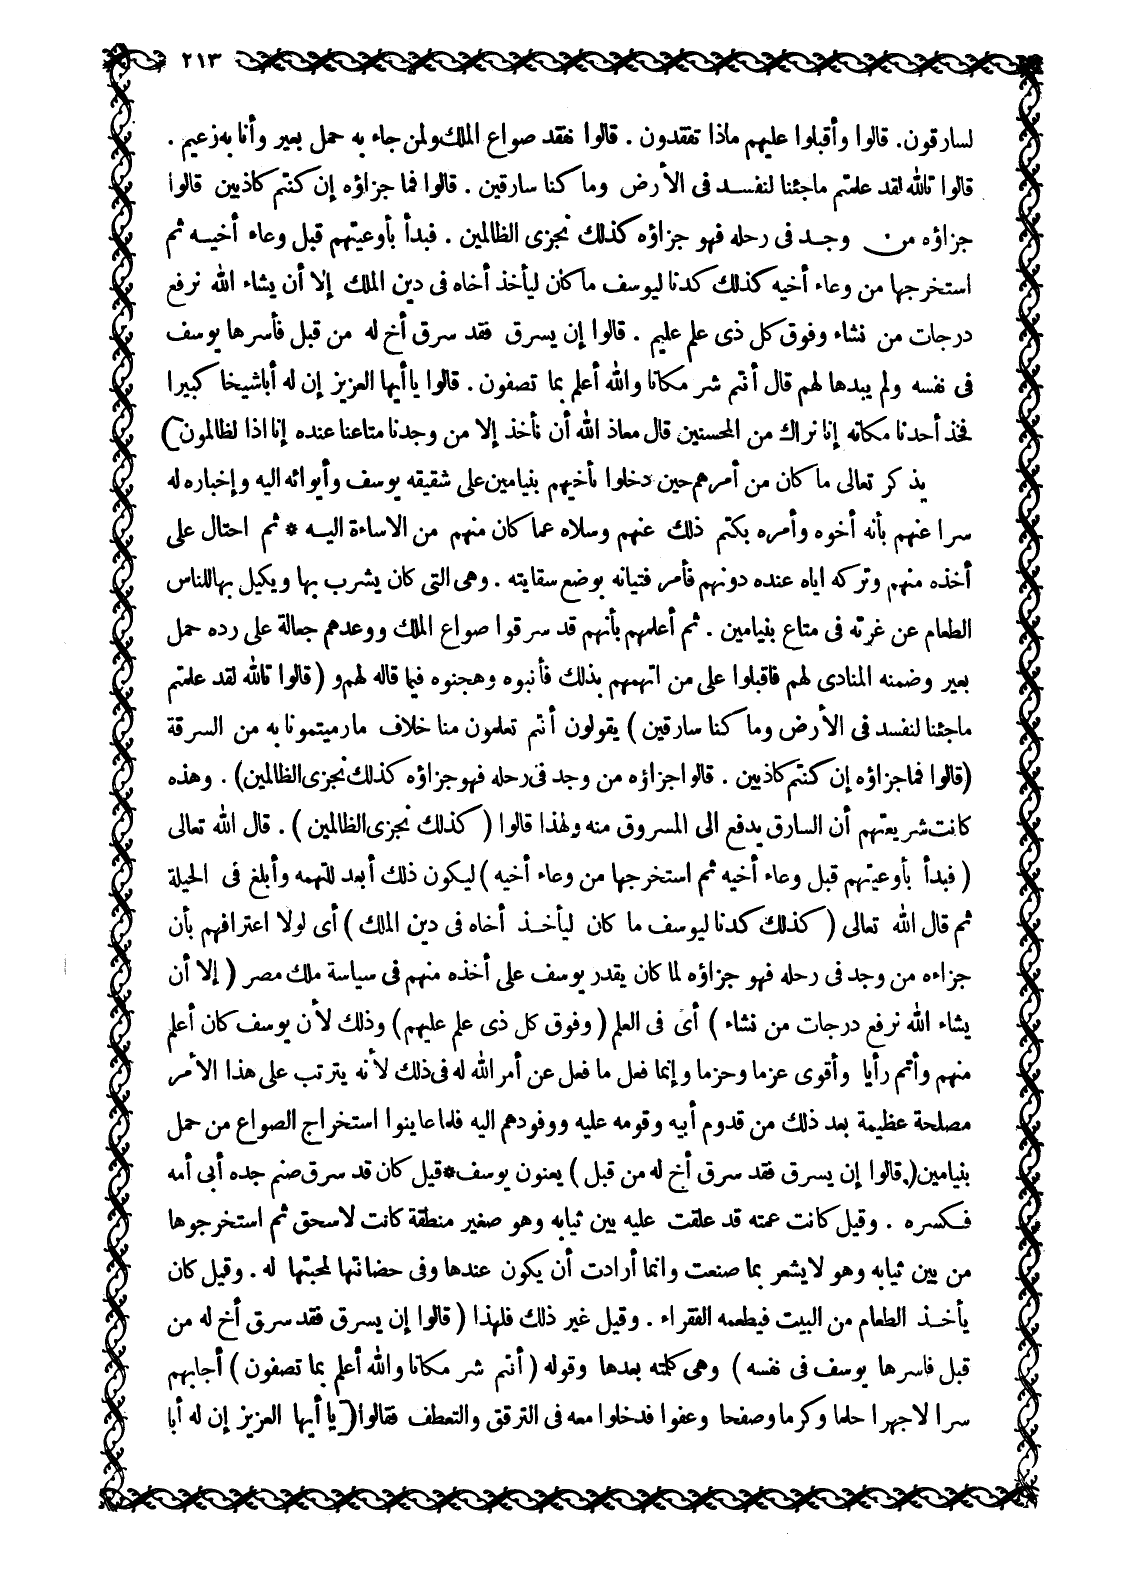 ٢١٣
لسارقون. قالوا وأقبلوا عليهم ماذا تفقدون . قالوا نفقد صواع الملك ولمن جاء به حمل بعير وأنا به زعيم .
قالوا تالله لقد علمتم ماجئنا لنفسد فى الأرض وما كنا سارقين . قالوا فما جزاؤه إن كنتم كاذبين قالوا
جزاؤه من وجد فى رحله فهو جزاؤه كذلك نجزى الظالمين . فبدأ بأوعيتهم قبل وعاء أخيه ثم
استخرجها من وعاء أخيه كذلك كدنا ليوسف ما كان ليأخذ أخاه فى دين الملك إلا أن يشاء الله نرفع
درجات من نشاء وفوق كل ذى علم عليم . قالوا إن يسرق فقد سرق أخ له من قبل فأسرها يوسف
فى نفسه ولم يبدها لهم قال أنتم شر مكانا والله أعلم بما تصفون . قالوا ياأيها العزيز إن له أباشيخا كبيرا
فخذ أحدنا مكانه إنا نراك من المحسنين قال معاذ الله أن نأخذ إلا من وجدنا متاعنا عنده إنا اذا لظالمون )
يذكر تعالى ما كان من أمرهم حين دخلوا بأخيهم بنيامين على شقيقه يوسف وأيوائه اليه وإخباره له
سرا عنهم بأنه أخوه وأمره بكتم ذلك عنهم وسلاه عما كان منهم من الاساءة اليه * ثم احتال على
أخذه منهم وتركه اياه عنده دونهم فأمر فتيانه بوضع سقايته . وهى التى كان يشرب بها ويكيل بها للناس
الطعام عن غرته فى متاع بنيامين . ثم أعلمهم بأنهم قد سرقوا صواع الملك ووعدهم جعالة على رده حمل
بعير وضمنه المنادى لهم فاقبلوا على من اتهمهم بذلك فأنبوه وهجنوه فيما قاله لهم و ( قالوا تالله لقد علمتم
ماجئنا لنفسد فى الأرض وما كنا سارقين ) يقولون أنتم تعلمون منا خلاف مارميتمونا به من السرقة
(قالوا فماجزاؤه إن كنتم كاذبين . قالوا جزاؤه من وجد فى رحله فهو جزاؤه كذلك نجزى الظالمين) . وهذه
كانت شريعتهم أن السارق يدفع الى المسروق منه ولهذا قالوا ( كذلك نجزى الظالمين ) . قال الله تعالى
( فبدأ بأوعيتهم قبل وعاء أخيه ثم استخرجها من وعاء أخيه ) ليكون ذلك أبعد للتهمه وأبلغ فى الحيلة
ثم قال الله تعالى ( كذلك كدنا ليوسف ما كان ليأخذ أخاه فى دين الملك ) أى لولا اعترافهم بأن
جزاءه من وجد فى رحله فهو جزاؤه لما كان يقدر يوسف على أخذه منهم فى سياسة ملك مصر ( إلا أن
يشاء الله نرفع درجات من نشاء ) أى فى العلم ( وفوق كل ذى علم عليهم) وذلك لأن يوسف كان أعلم
منهم وأتم رأيا وأقوى عزما وحزما وإنما فعل ما فعل عن أمر الله له فى ذلك لأنه يترتب على هذا الأمر
مصلحة عظيمة بعد ذلك من قدوم أبيه وقومه عليه ووفودهم اليه فلما عاينوا استخراج الصواع من حمل
بنيامين ( قالوا إن يسرق فقد سرق أخ له من قبل ) يعنون يوسف * قيل كان قد سرق صنم جده أبى أمه
فكسره . وقيل كانت عمته قد علقت عليه بين ثيابه وهو صغير منطقة كانت لاسحق ثم استخرجوها
من بين ثيابه وهو لايشعر بما صنعت وانما أرادت أن يكون عندها وفى حضانتها لمحبتها له . وقيل كان
يأخذ الطعام من البيت فيطعمه الفقراء . وقيل غير ذلك فلهذا ( قالوا إن يسرق فقد سرق أخ له من
قبل فاسرها يوسف فى نفسه ) وهى كلمته بعدها وقوله ( أنتم شر مكانا والله أعلم بما تصفون ) أجابهم
سرا لاجهرا حلما وكرما وصفحا وعفوا فدخلوا معه فى الترقق والتعطف فقالوا ( يا أيها العزيز إن له أبا